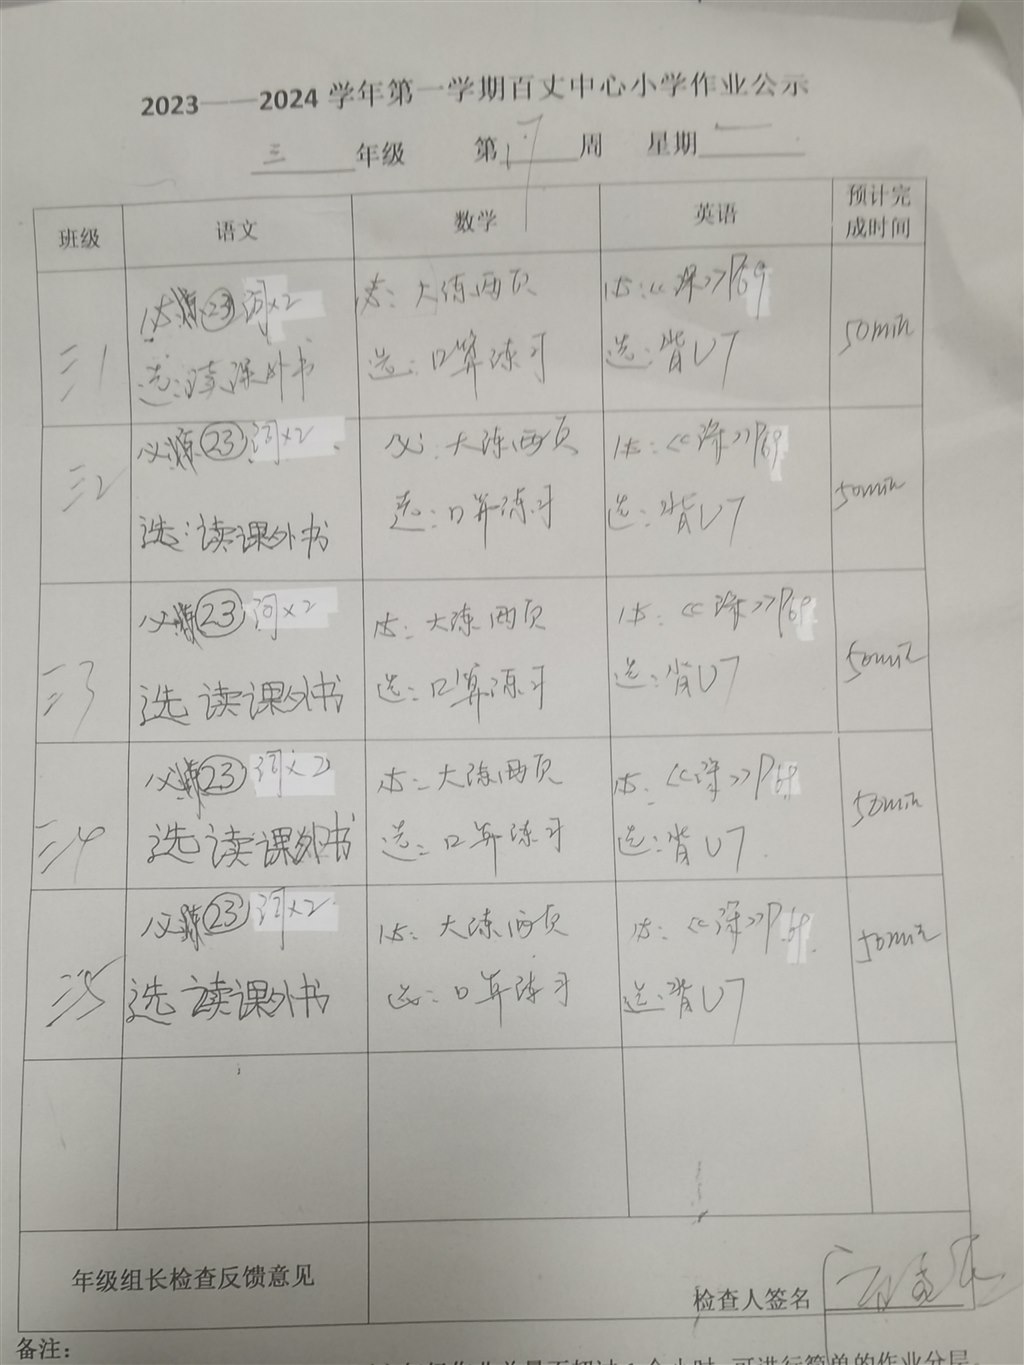 2023——2024 学年第一学期百丈中心小学作业公示
三 年级 第 17 周 星期 一
班级 语文 数学 英语 预计完成时间
三1 必 练㉓词×2 必：大练两页 必：《课》P69 50min
选：读课外书 选：口算练习 选：背U7
三2 必 练㉓词×2 必：大练两页 必：《课》P69 50min
选：读课外书 选：口算练习 选：背U7
三3 必 练㉓词×2 必：大练两页 必：《课》P69 50min
选 读课外书 选：口算练习 选：背U7
三4 必 练㉓词×2 必：大练两页 必：《课》P69 50min
选 读课外书 选：口算练习 选：背U7
三5 必 练㉓词×2 必：大练两页 必：《课》P69 50min
选 读课外书 选：口算练习 选：背U7
年级组长检查反馈意见
检查人签名
备注：
可进行简单的作业分层